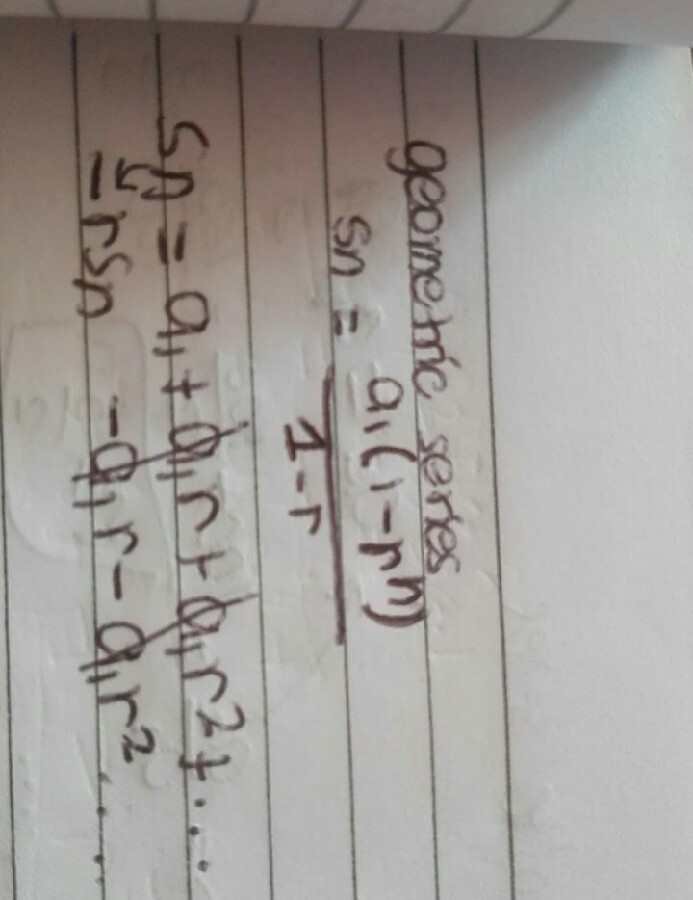 geometric series
Sn = a₁(1-rⁿ)
1-r
Sn = a₁ + a₁r + a₁r² + ...
-rSn -a₁r - a₁r² ...